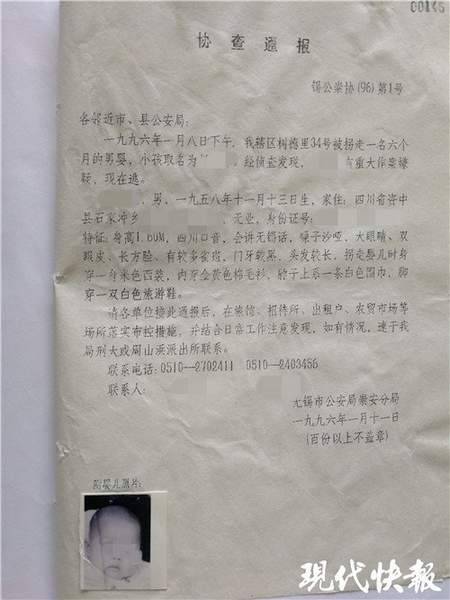 00145
协查通报
锡公崇协(96)第1号
各邻近市、县公安局:
一九九六年一月八日下午，我辖区树德里34号被拐走一名六个
月的男婴，小孩取名为 经侦查发现， 有重大作案嫌
疑，现在逃。
，男，一九五八年十一月十三日生，家住：四川省资中
县石家冲乡 ，无业，身份证号：
特征：身高1.60M，四川口音，会讲无锡话，嗓子沙哑，大眼睛、双
眼皮、长方脸、有较多雀斑，门牙较黑，头发较长，拐走婴儿时身
穿一身米色西装，内穿金黄色棉毛衫，脖子上系一条白色围巾，脚
穿一双白色旅游鞋。
请各单位接此通报后，在旅馆、招待所、出租户、农贸市场等
场所落实布控措施，并结合日常工作注意发现，如有情况，速于我
局刑大或周山浜派出所联系。
联系电话：0510—2702411 0510—2403456
联系人：
无锡市公安局崇安分局
一九九六年一月十一日
(百份以上不盖章)
附婴儿照片：
现代快报